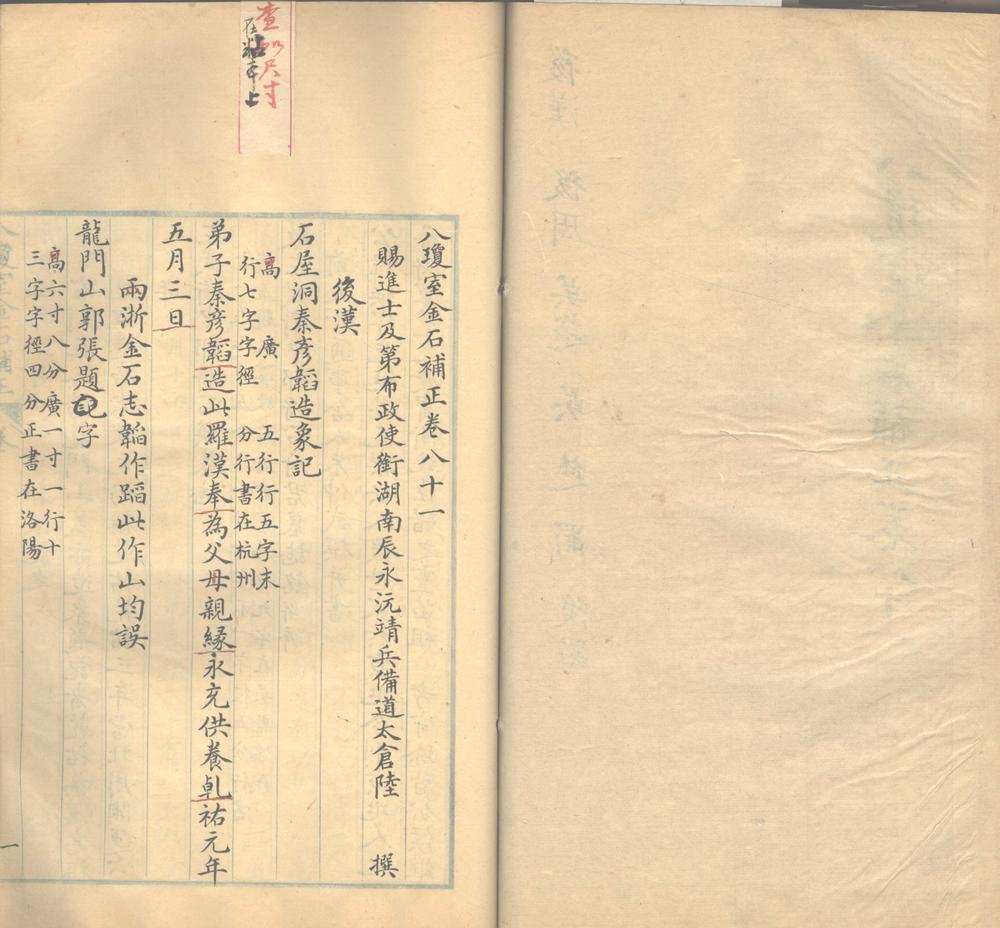 查明尺寸
在粘本上
八瓊室金石補正卷八十一
賜進士及第布政使銜湖南辰永沅靖兵備道太倉陸 撰
後漢
石屋洞秦彥韜造象記
高 廣 五行行五字末
行七字字徑 分行書在杭州
弟子秦彥韜造此羅漢奉為父母親緣永充供養乹祐元年
五月三日
兩浙金石志韜作蹈此作山均誤
龍門山郭張題記字
高六寸八分廣一寸一行十
三字字徑四分正書在洛陽
一